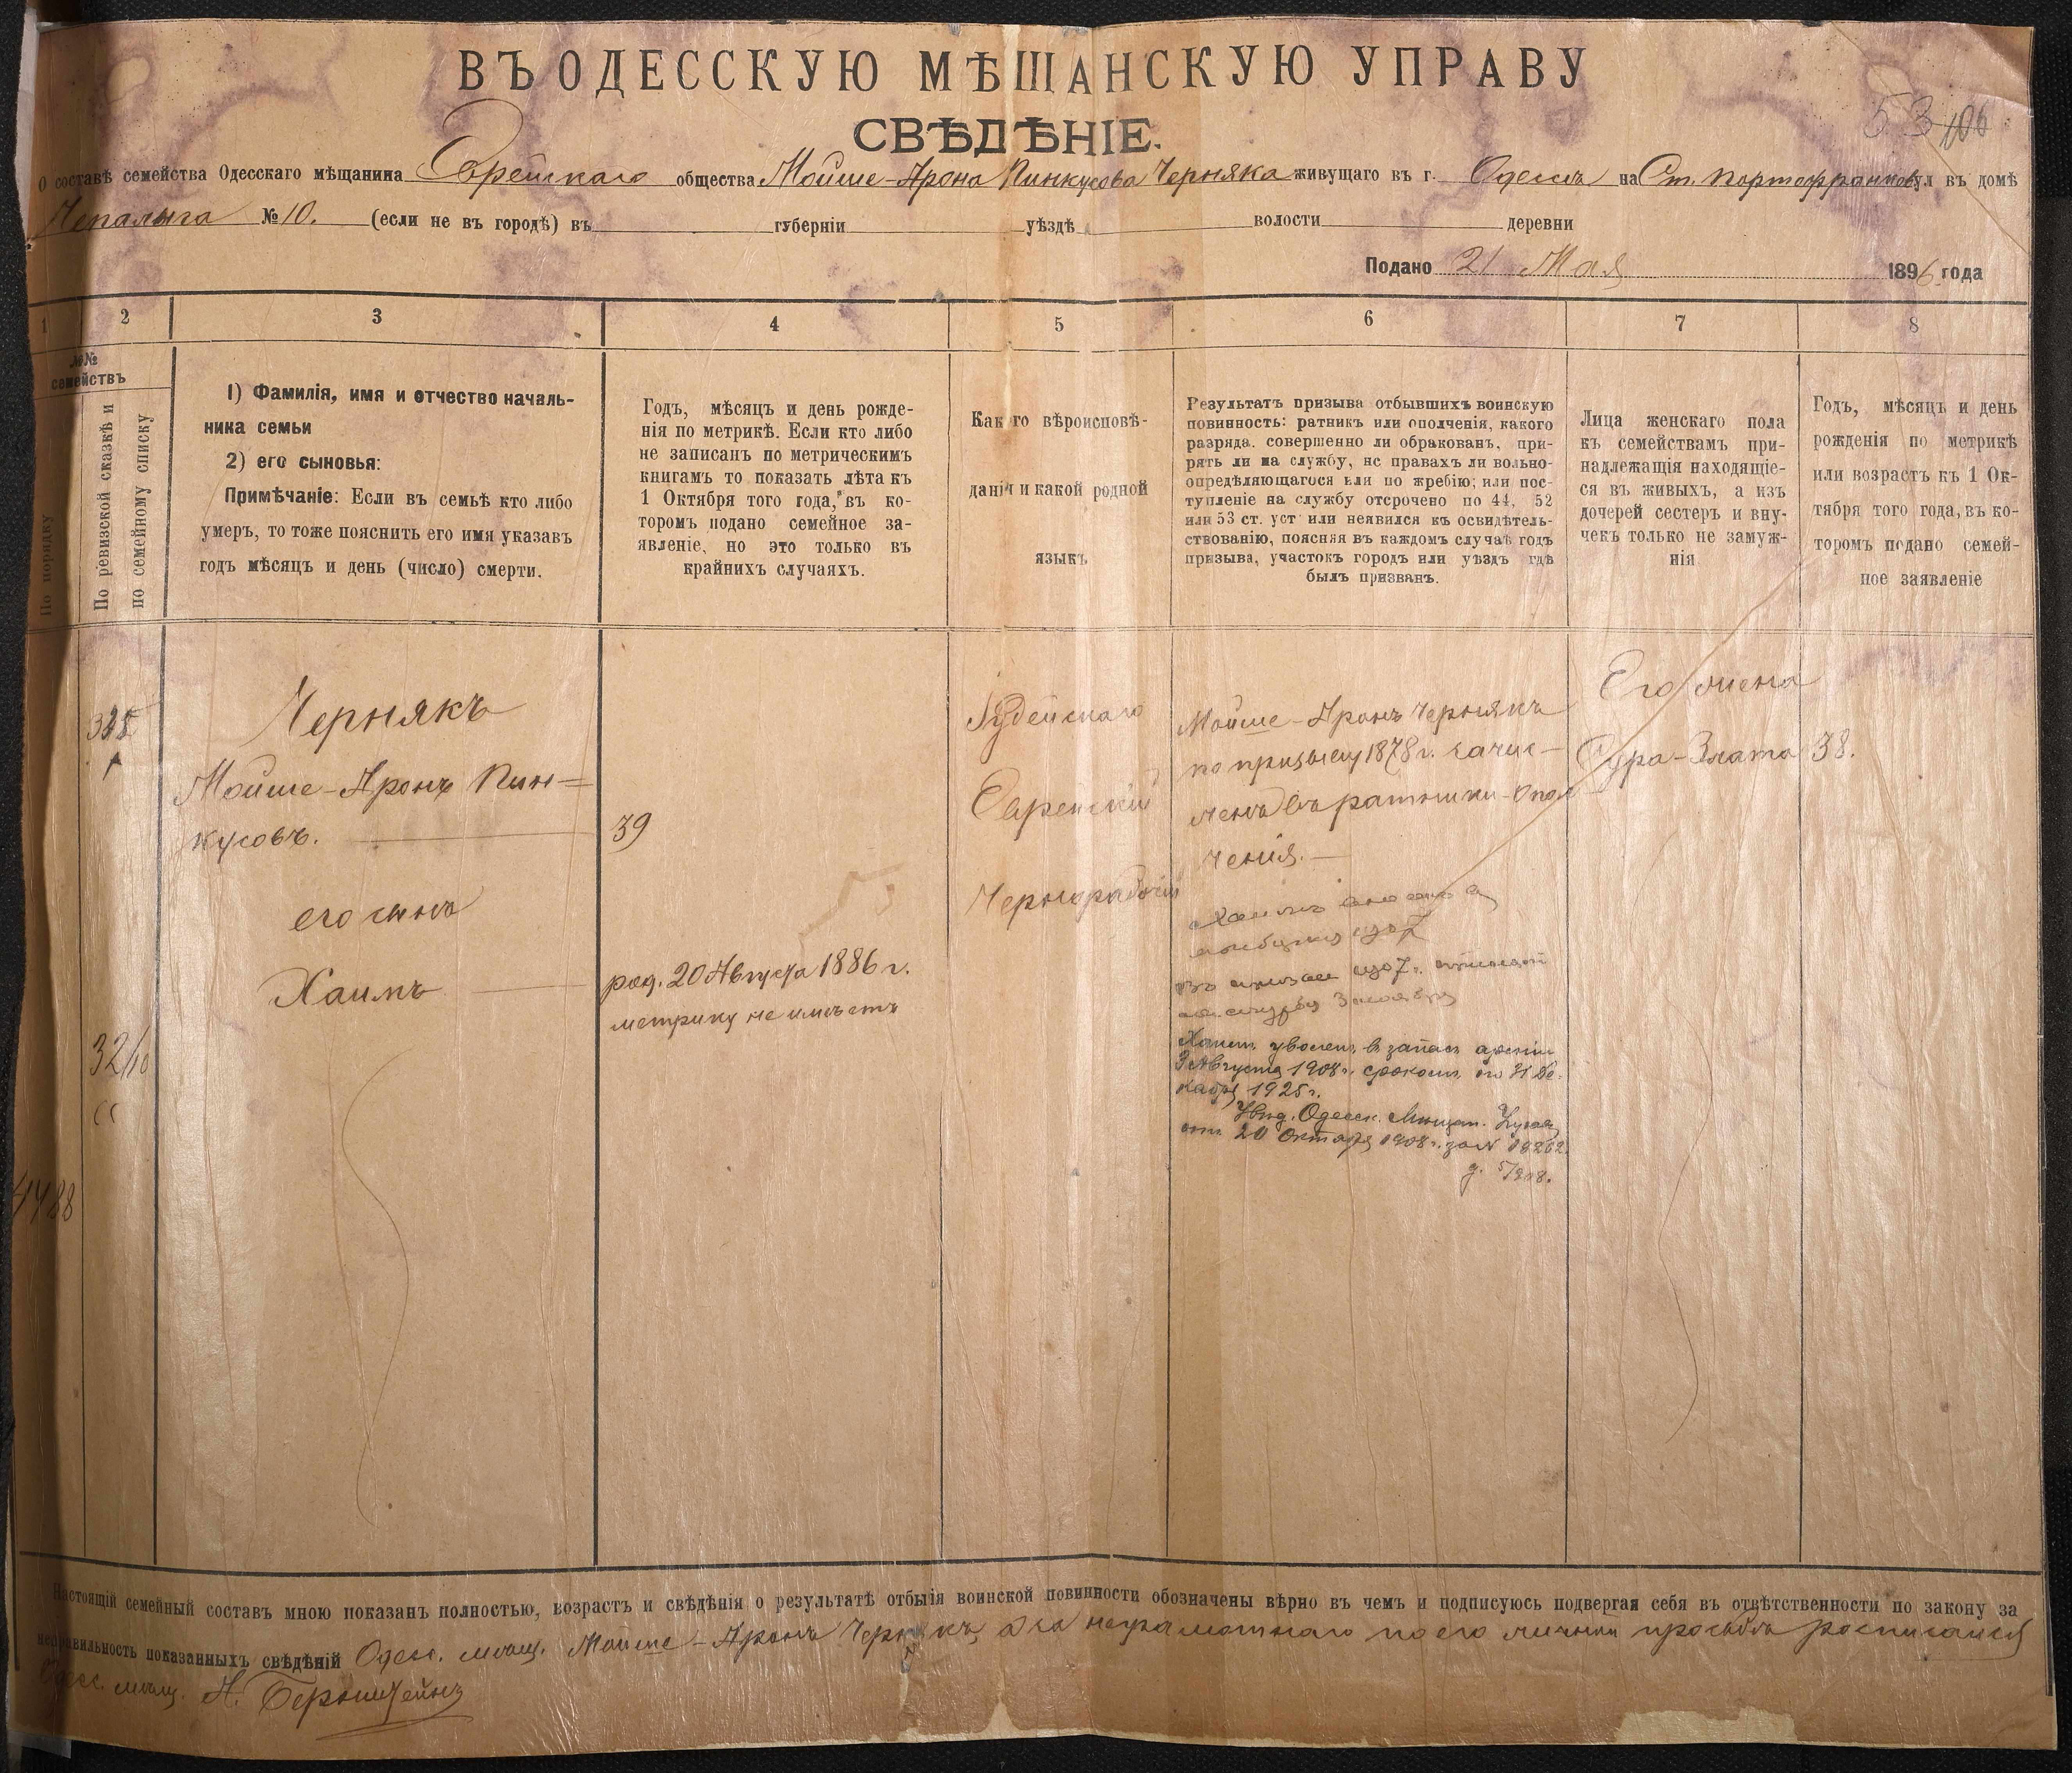 ВЪ ОДЕССКУЮ МѢЩАНСКУЮ УПРАВУ
53 106
СВѢДѢНІЕ.
О составѣ семейства Одесскаго мѣщанина Еврейскаго общества Мойше-Арона Пинкусова Черняка живущаго въ г. Одессѣ на Ст. портофранков ул въ домѣ
Чепалыга № 10. (если не въ городѣ) въ губерніи уѣздѣ волости деревни
Подано 21 Мая 1896 года
1 2 3 4 5 6 7 8
№№
семействъ
По порядку
По ревизской сказкѣ и
по семейному списку
1) Фамилія, имя и отчество началь-
ника семьи
2) его сыновья:
Примѣчаніе: Если въ семьѣ кто либо
умеръ, то тоже пояснить его имя указавъ
годъ мѣсяцъ и день (число) смерти.
Годъ, мѣсяцъ и день рожде-
нія по метрикѣ. Если кто либо
не записанъ по метрическимъ
книгамъ то показать лѣта къ
1 Октября того года, въ ко-
торомъ подано семейное за-
явленіе, но это только въ
крайнихъ случаяхъ.
Какого вѣроисповѣ-
данія и какой родной
языкъ
Результатъ призыва отбывшихъ воинскую
повинность: ратникъ или ополченія, какого
разряда. совершенно ли обракованъ, при-
рять ли на службу, не правахъ ли вольно-
опредѣляющагося или по жребію; или пос-
тупленіе на службу отсрочено по 44, 52
или 53 ст. уст или неявился къ освидѣтель-
ствованію, поясняя въ каждомъ случаѣ годъ
призыва, участокъ городъ или уѣздъ гдѣ
былъ призванъ.
Лица женскаго пола
къ семействамъ при-
надлежащія находящіе-
ся въ живыхъ, а изъ
дочерей сестеръ и вну-
чекъ только не замуж-
нія
Годъ, мѣсяцъ и день
рожденія по метрикѣ
или возрастъ къ 1 Ок-
тября того года, въ ко-
торомъ подано семей-
ное заявленіе
Чернякъ
Мойше-Аронъ Пин=
кусовъ.
39
его сынъ
Хаимъ
род. 20 Августа 1886 г.
метрику не имѣетъ
Іудейскаго
Еврейскій
Чернорабочій
Мойше-Аронъ Чернякъ
по призыву 1878 г. зачис-
ленъ въ ратники-опол
ченія.
Хаимъ
1907
1907 г.
3 ноября
Хаимъ уволен. в запас арміи
3 Августа 1908 г. срокомъ по 31 Де-
кабря 1925 г.
Увед. Одесск. Мѣщан. Управ.
отъ 20 Октября 1908 г. за №
Его жена
Сура-Злата 38.
32/10
4488
Настоящій семейный составъ мною показанъ полностью, возрастъ и свѣдѣнія о результатѣ отбытія воинской повинности обозначены вѣрно въ чемъ и подписуюсь подвергая себя въ отвѣтственности по закону за
неправильность показанныхъ свѣдѣній Одес. мѣщ. Мойше-Аронъ Чернякъ, а за неграмотнаго по его личной просьбѣ росписался
Одесс. мѣщ. Н. Бернштейнъ